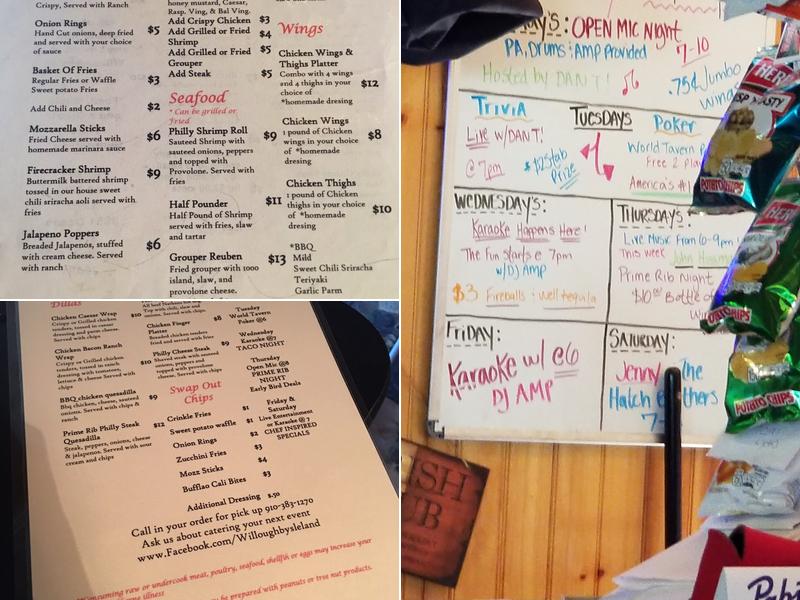 Crispy, Served with Ranch
Onion Rings $5
Hand Cut onions, deep fried
and served with your choice
of sauce
Basket Of Fries $3
Regular Fries or Waffle
Sweet potato Fries
Add Chili and Cheese $2
Mozzarella Sticks $6
Fried Cheese served with
homemade marinara sauce
Firecracker Shrimp $9
Buttermilk battered shrimp
tossed in our house sweet
chili sriracha aoli served with
fries
Jalapeno Poppers $6
Breaded Jalapenos, stuffed
with cream cheese. Served
with ranch
honey mustard, Caesar,
Rasp. Ving, & Bal Ving.
Add Crispy Chicken $3
Add Grilled or Fried $4
Shrimp
Add Grilled or Fried $5
Grouper
Add Steak $5
Seafood
* Can be grilled or
fried
Philly Shrimp Roll $9
Sauteed Shrimp with
sauteed onions, peppers
and topped with
Provolone. Served with
fries
Half Pounder $11
Half Pound of Shrimp
served with fries, slaw
and tartar
Grouper Reuben $13
Fried grouper with 1000
island, slaw, and
provolone cheese.
Wings
Chicken Wings &
Thighs Platter
Combo with 4 wings
and 4 thighs in your $12
choice of
*homemade
dressing
Chicken Wings
1 pound of Chicken $8
wings in your choice
of *homemade
dressing
Chicken Thighs
1 pound of Chicken
thighs in your choice $10
of *homemade
dressing
*BBQ
Mild
Sweet Chili Sriracha
Teriyaki
Garlic Parm
Dillas
Chicken Caesar Wrap $10
Crispy or Grilled chicken
Chicken Bacon Ranch
Wrap $10
Crispy or Grilled chicken
tenders, tossed in ranch
dressing with tomatoes,
lettuce & cheese Served with
chips
BBQ chicken quesadilla $9
Bbq chicken, cheese, sauteed
onions. Served with chips &
ranch
Prime Rib Philly Steak
Quesadilla $12
Steak, peppers, onions, cheese
& jalapenos. Served with sour
cream and chips
Chicken Finger
Platter $8
Breaded chicken tenders
fried and served with fries
Philly Cheese Steak $9
Shaved steak with sauteed
onions, peppers and
topped with provolone
cheese. Served with chips
Swap Out
Chips
Crinkle Fries $1
Sweet potato waffle $1
Onion Rings $2
Zucchini Fries $3
Mozz Sticks $4
Bufflao Cali Bites $3
Additional Dressing $.50
Tuesday
World Tavern
Poker @6
Wednesday
Karaoke @7
TACO NIGHT
Thursday
Open Mic @8
PRIME RIB
NIGHT
Early Bird Deals
Friday &
Saturday
Live Entertainment
or Karaoke @ 7
CHEF INSPIRED
SPECIALS
Call in your order for pick up 910-383-1270
Ask us about catering your next event
www.Facebook.com/Willoughbysleland
consuming raw or undercook meat, poultry, seafood, shellfish or eggs may increase your
illness
be prepared with peanuts or tree nut products.
OPEN MIC Night
PA, Drums & Amp Provided
7-10
Hosted by DAN T!
.75¢ Jumbo
Wings
TRIVIA
Live w/DANT!
@ 7pm
$25 tab
Prize
TUESDAYS
Poker
World Tavern
Free 2 Play
America's #1
WEDNESDAY'S:
Karaoke Happens Here!
The Fun Starts @ 7pm
w/DJ AMP
$3 Fireballs & Well tequila
THURSDAYS:
Live Music From 6-9pm
This week John
Prime Rib Night
$10 Bottle of
FRIDAY:
Karaoke w/ @6
DJ AMP
SATURDAY:
Jenny The
Hatch
7-
HERR
CRISP 'N TASTY
POTATO CHIPS
HERR
POTATO CHIPS
POTATO CHIPS
ISH
UB
Pabst